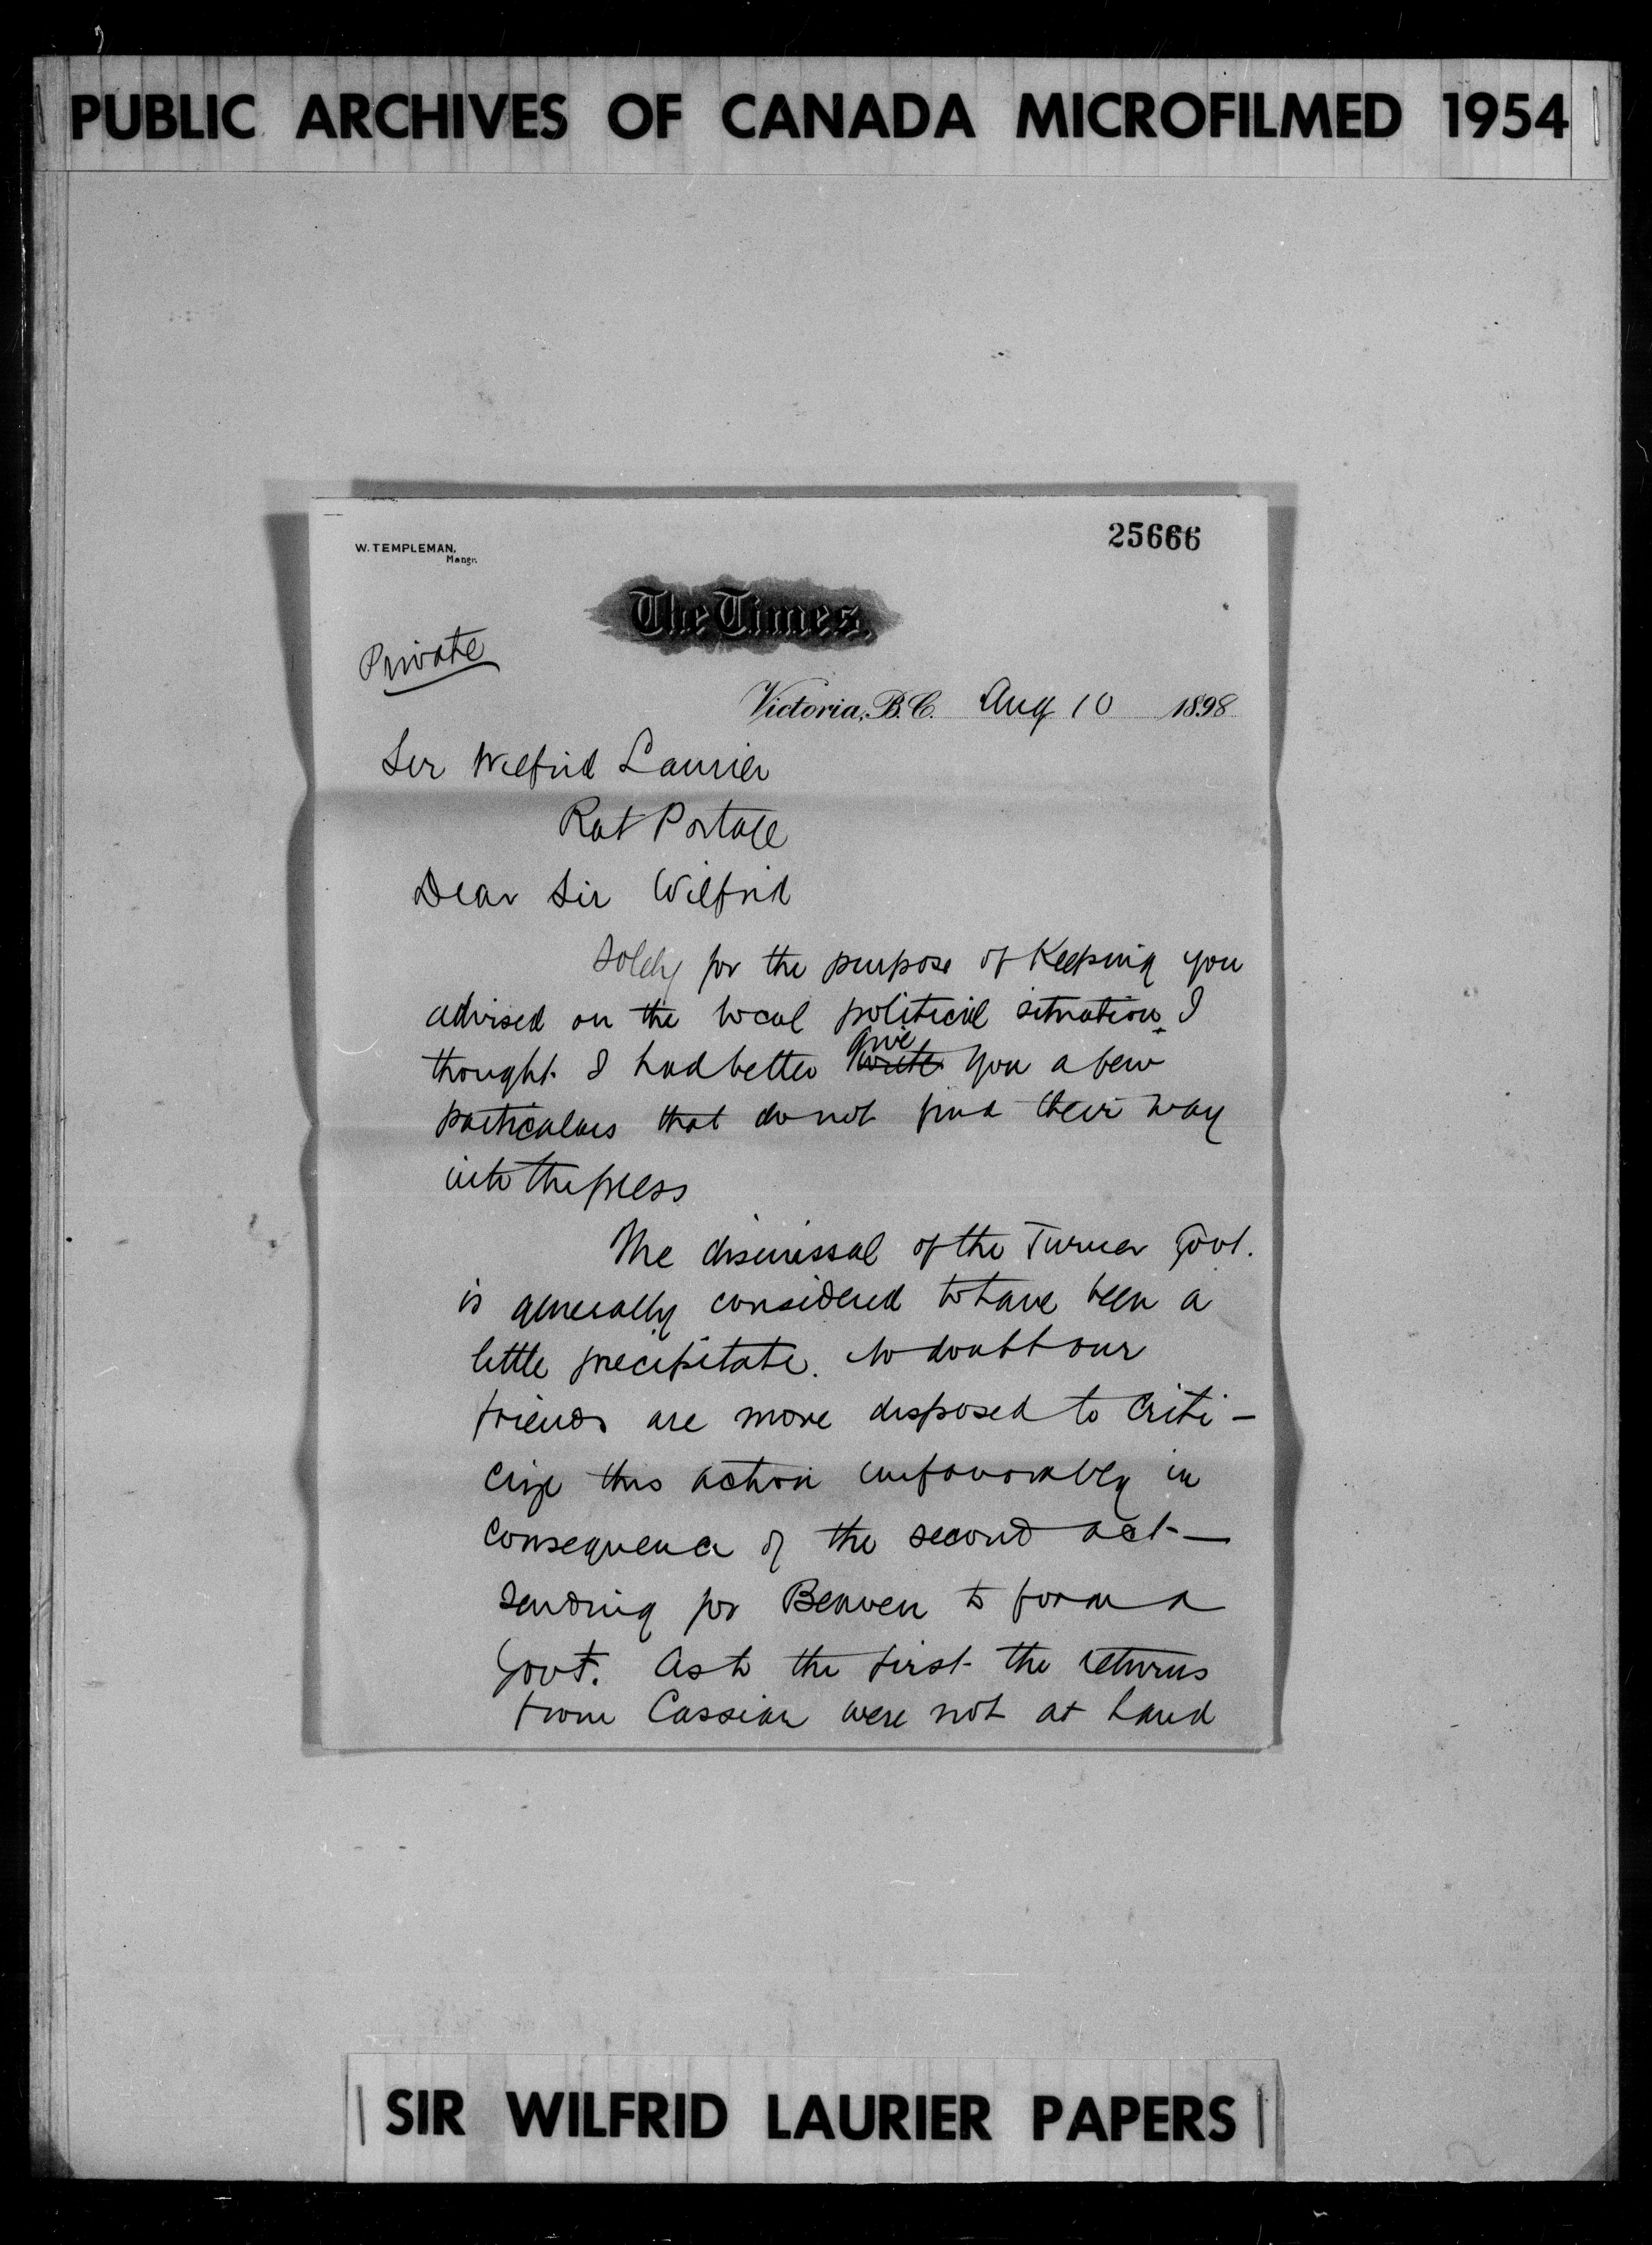 PUBLIC ARCHIVES OF CANADA MICROFILMED 1954
25666
W. TEMPLEMAN,
Mangr.
The Times.
Private
Victoria, B.C. Aug 10 1898
Sir Wilfrid Laurier
Rat Portage
Dear Sir Wilfrid
Solely for the purpose of keeping you
advised on the local political situation I
give
thought I had better write you a few
particulars that do not find their way
into the press
The dismissal of the Turner Govt.
is generally considered to have been a
little precipitate. No doubt our
friends are more disposed to criti-
cize this action unfavorably in
consequence of the second act —
sending for Beaven to form a
Govt. As to the first the returns
from Cassiar were not at hand
SIR WILFRID LAURIER PAPERS